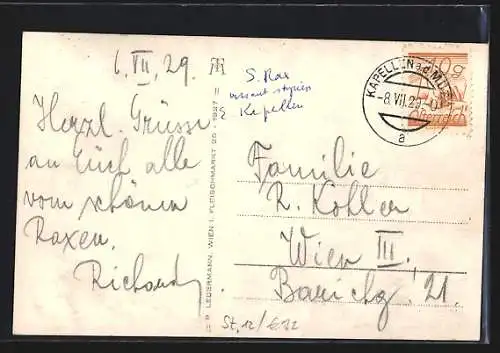 6. VII. 29.
Herzl. Grüsse
an Euch alle
vom schönen
Raxen.
Richard
P. LEDERMANN, WIEN I. FLEISCHMARKT 20 - 1927
S. Rax
versant styrien
Kapellen
KAPELLEN a.d. MÜRZ
-8.VII.29
a
Österreich
Familie
R. Kohler
Wien III.
Barichg. 21.
St. 12/